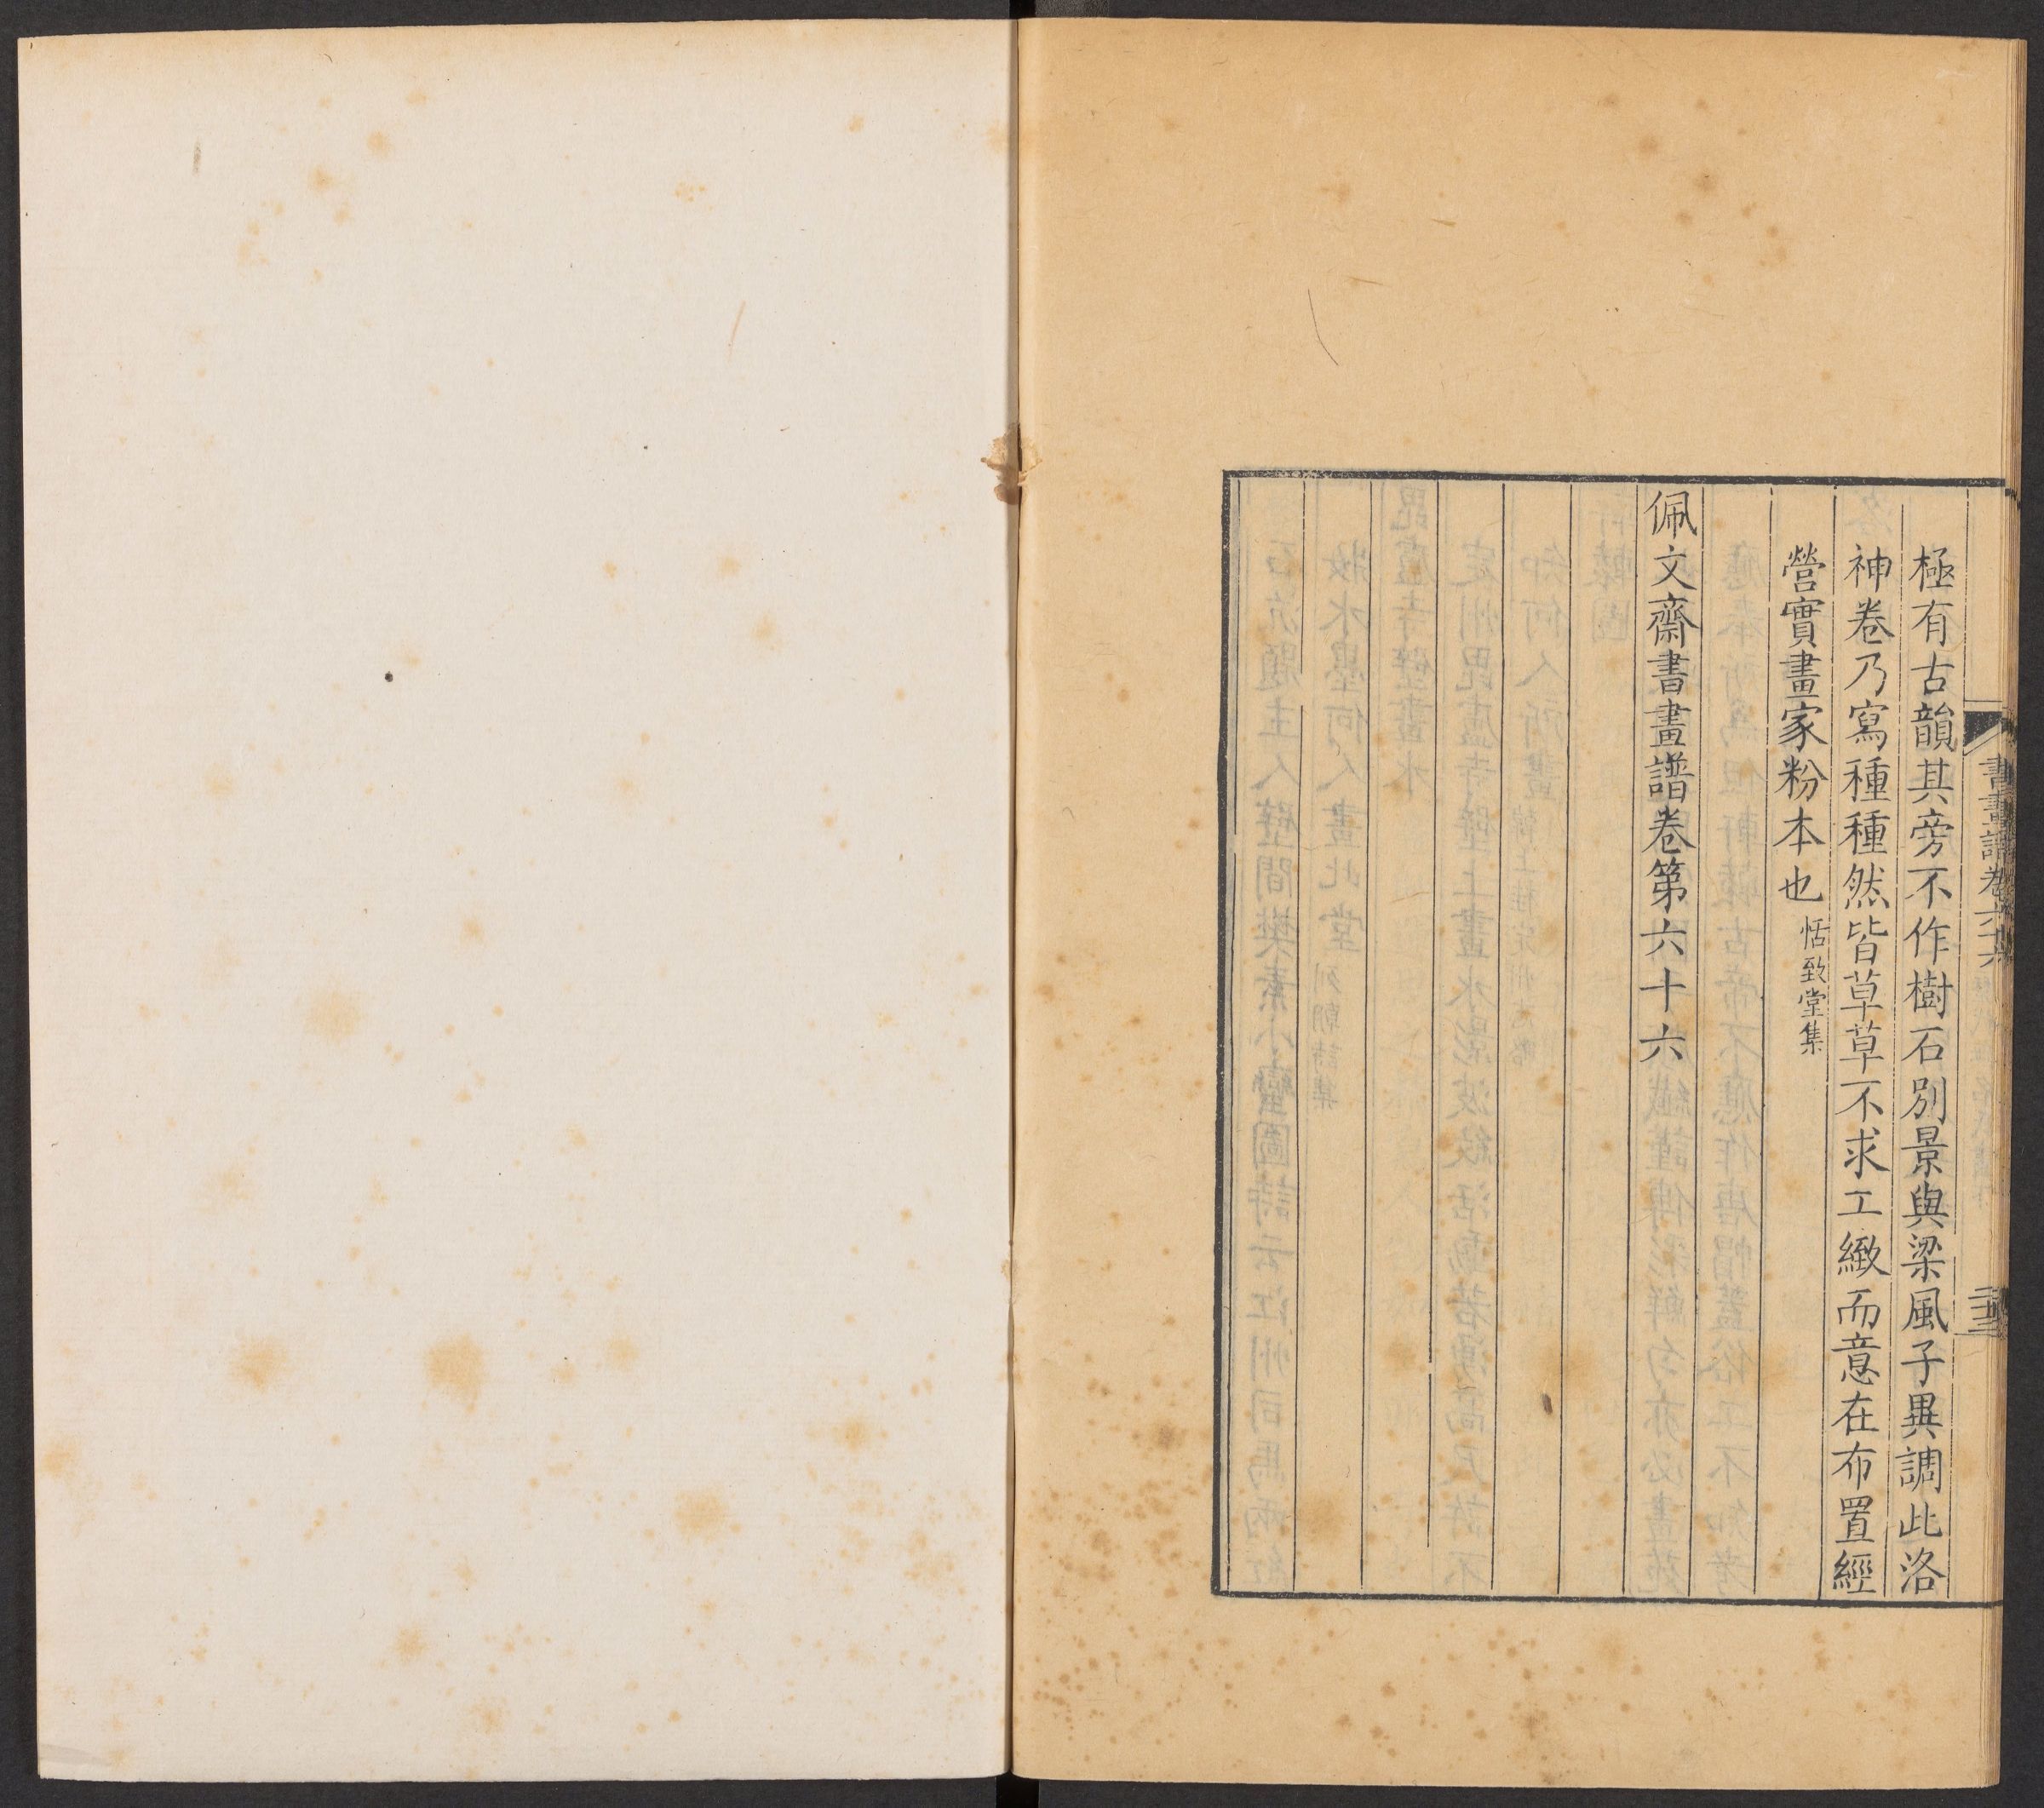 極有古韻其旁不作樹石別景與梁風子異調此洛
神卷乃寫種種然皆草草不求工緻而意在布置經
營實畫家粉本也恬致堂集
佩文齋書畫譜卷第六十六
書畫譜卷六十六